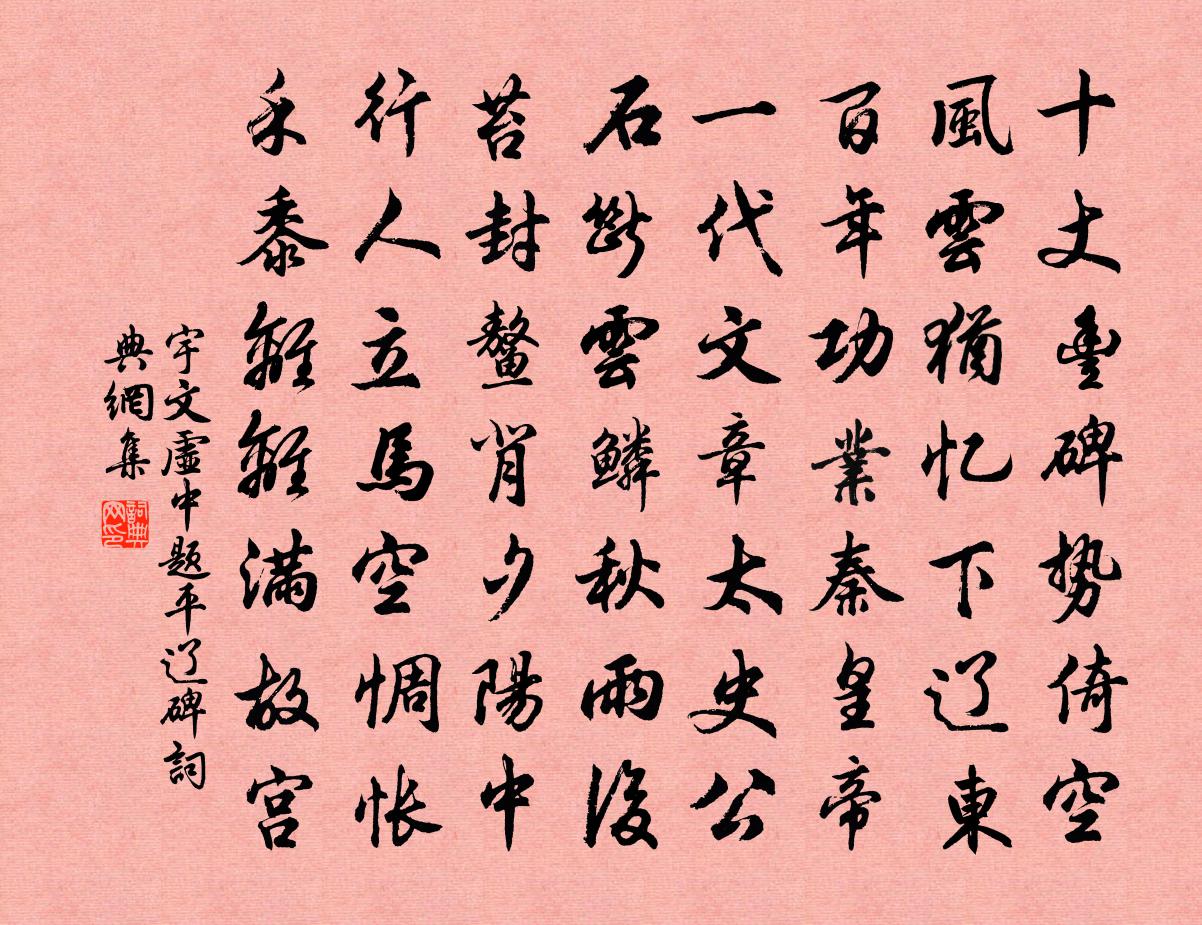 十丈豐碑势倚空
風雲猶忆下辽東
百年功業秦皇帝
一代文章太史公
石斷雲鱗秋雨後
苔封鳌背夕陽中
行人立馬空惆怅
禾黍離離滿故宫
宇文虛中题平辽碑詞
典網集
詞典网印